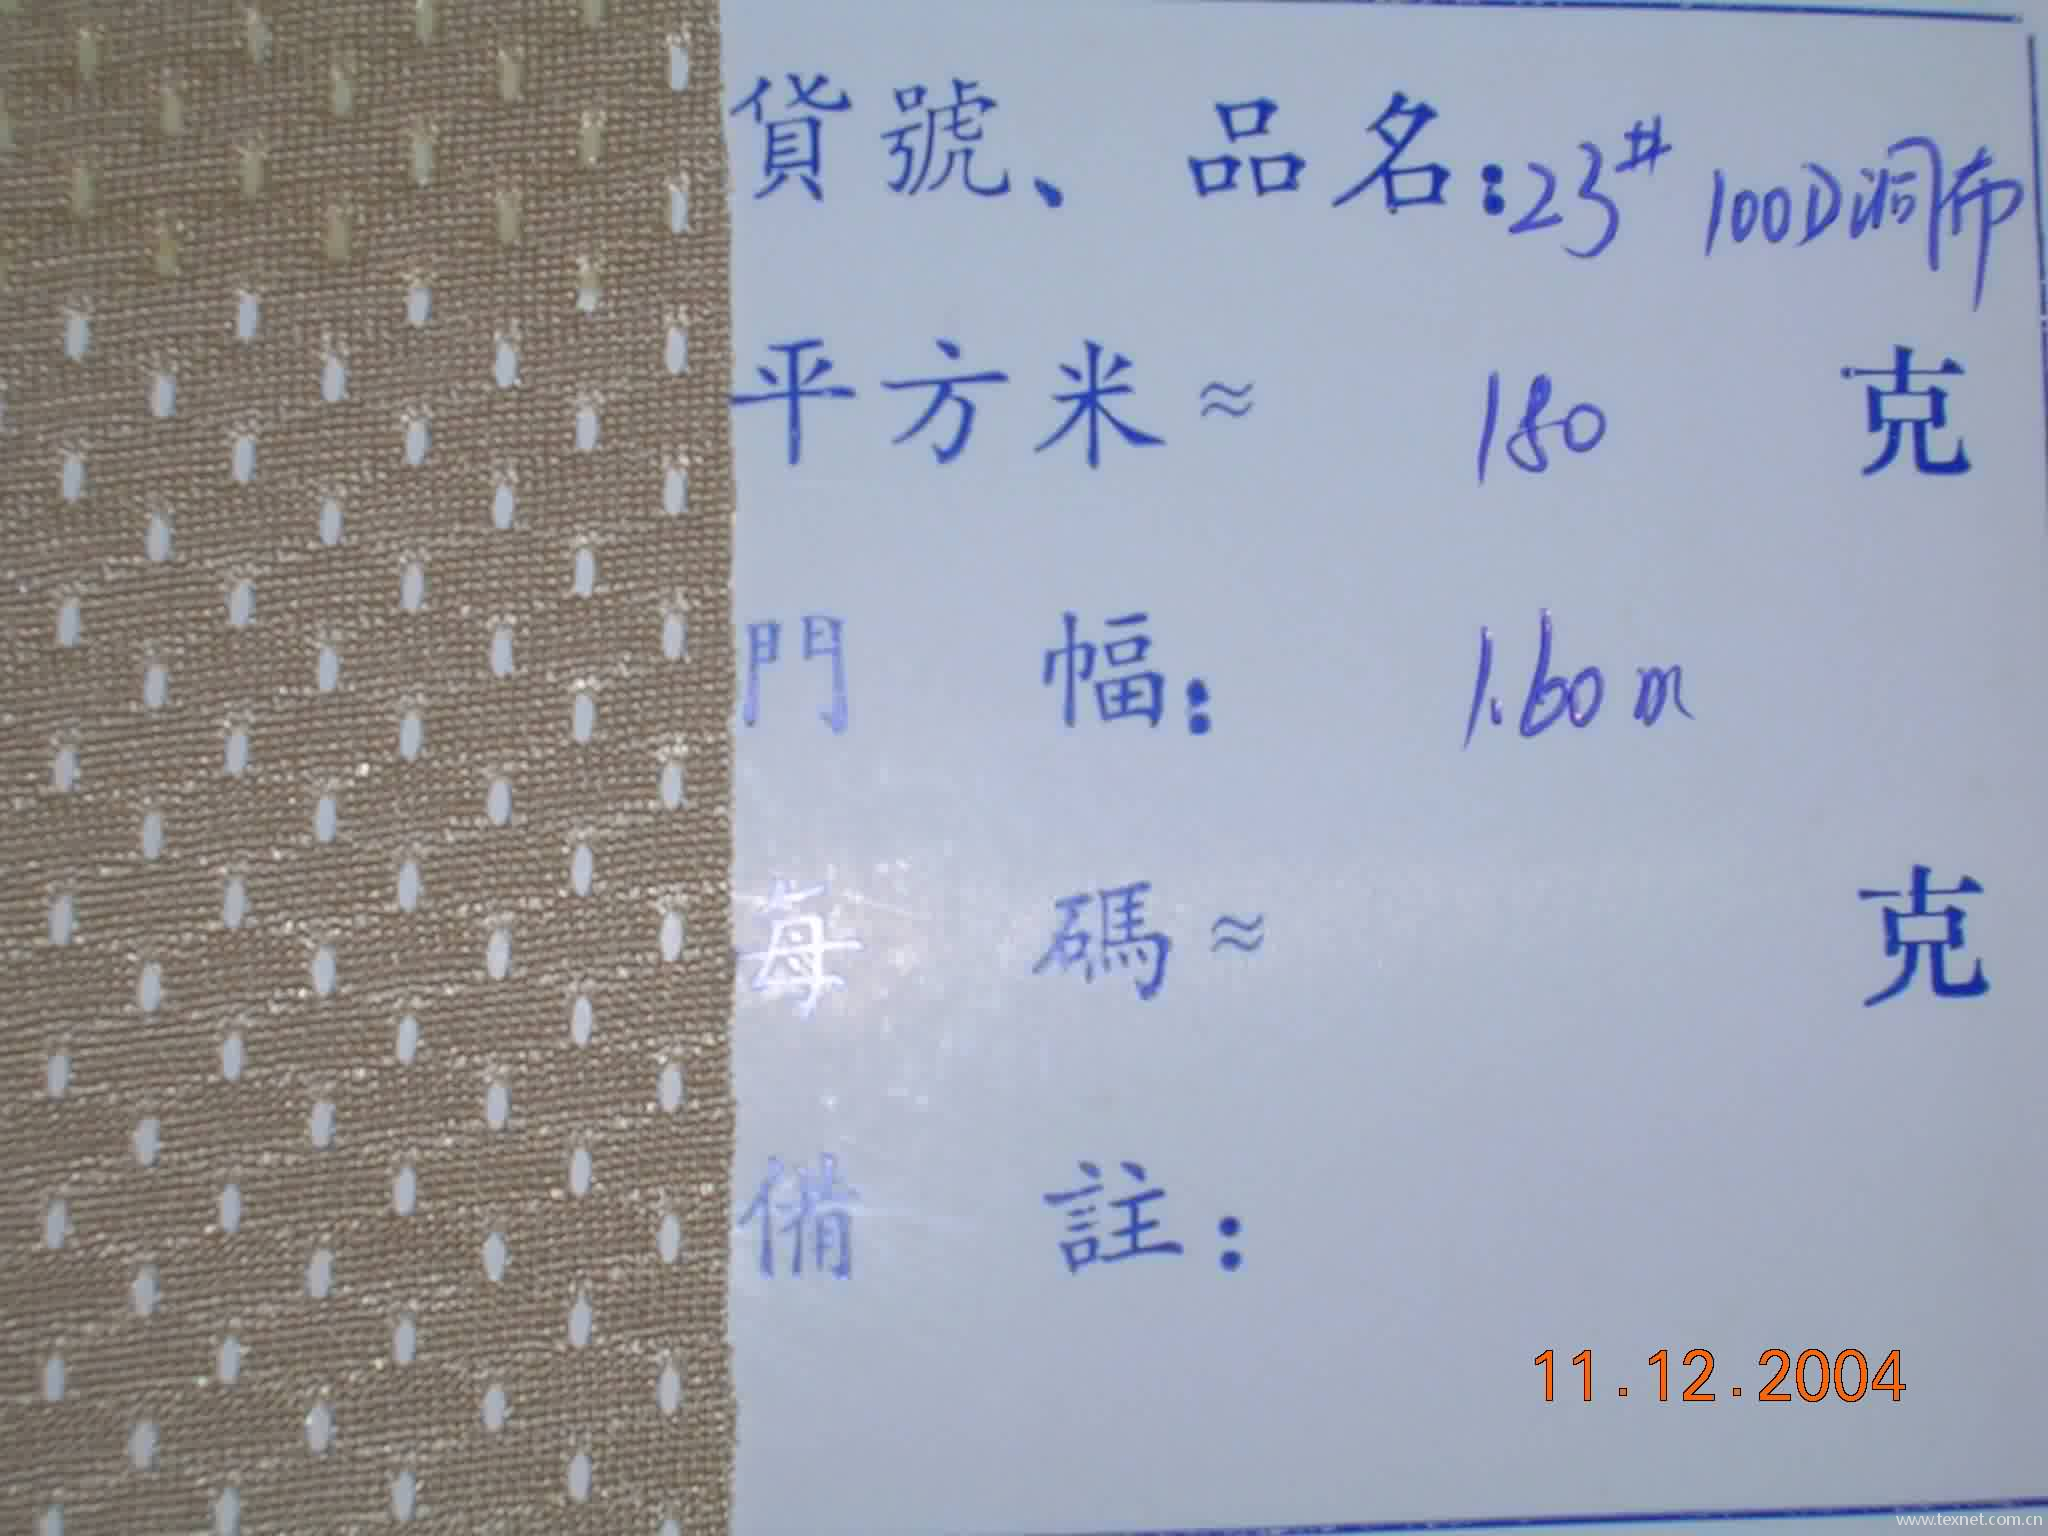 貨號、品名:23# 100D洞布
平方米≈ 180 克
門幅: 1.60m
每碼≈ 克
備註:
11.12.2004
www.texnet.com.cn